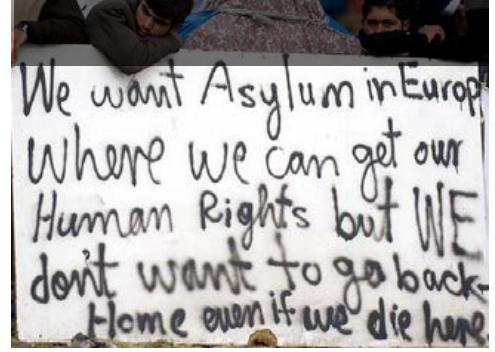 We want Asylum in Europ
Where we can get our
Human Rights but WE
don't want to go back-
Home even if we die here.